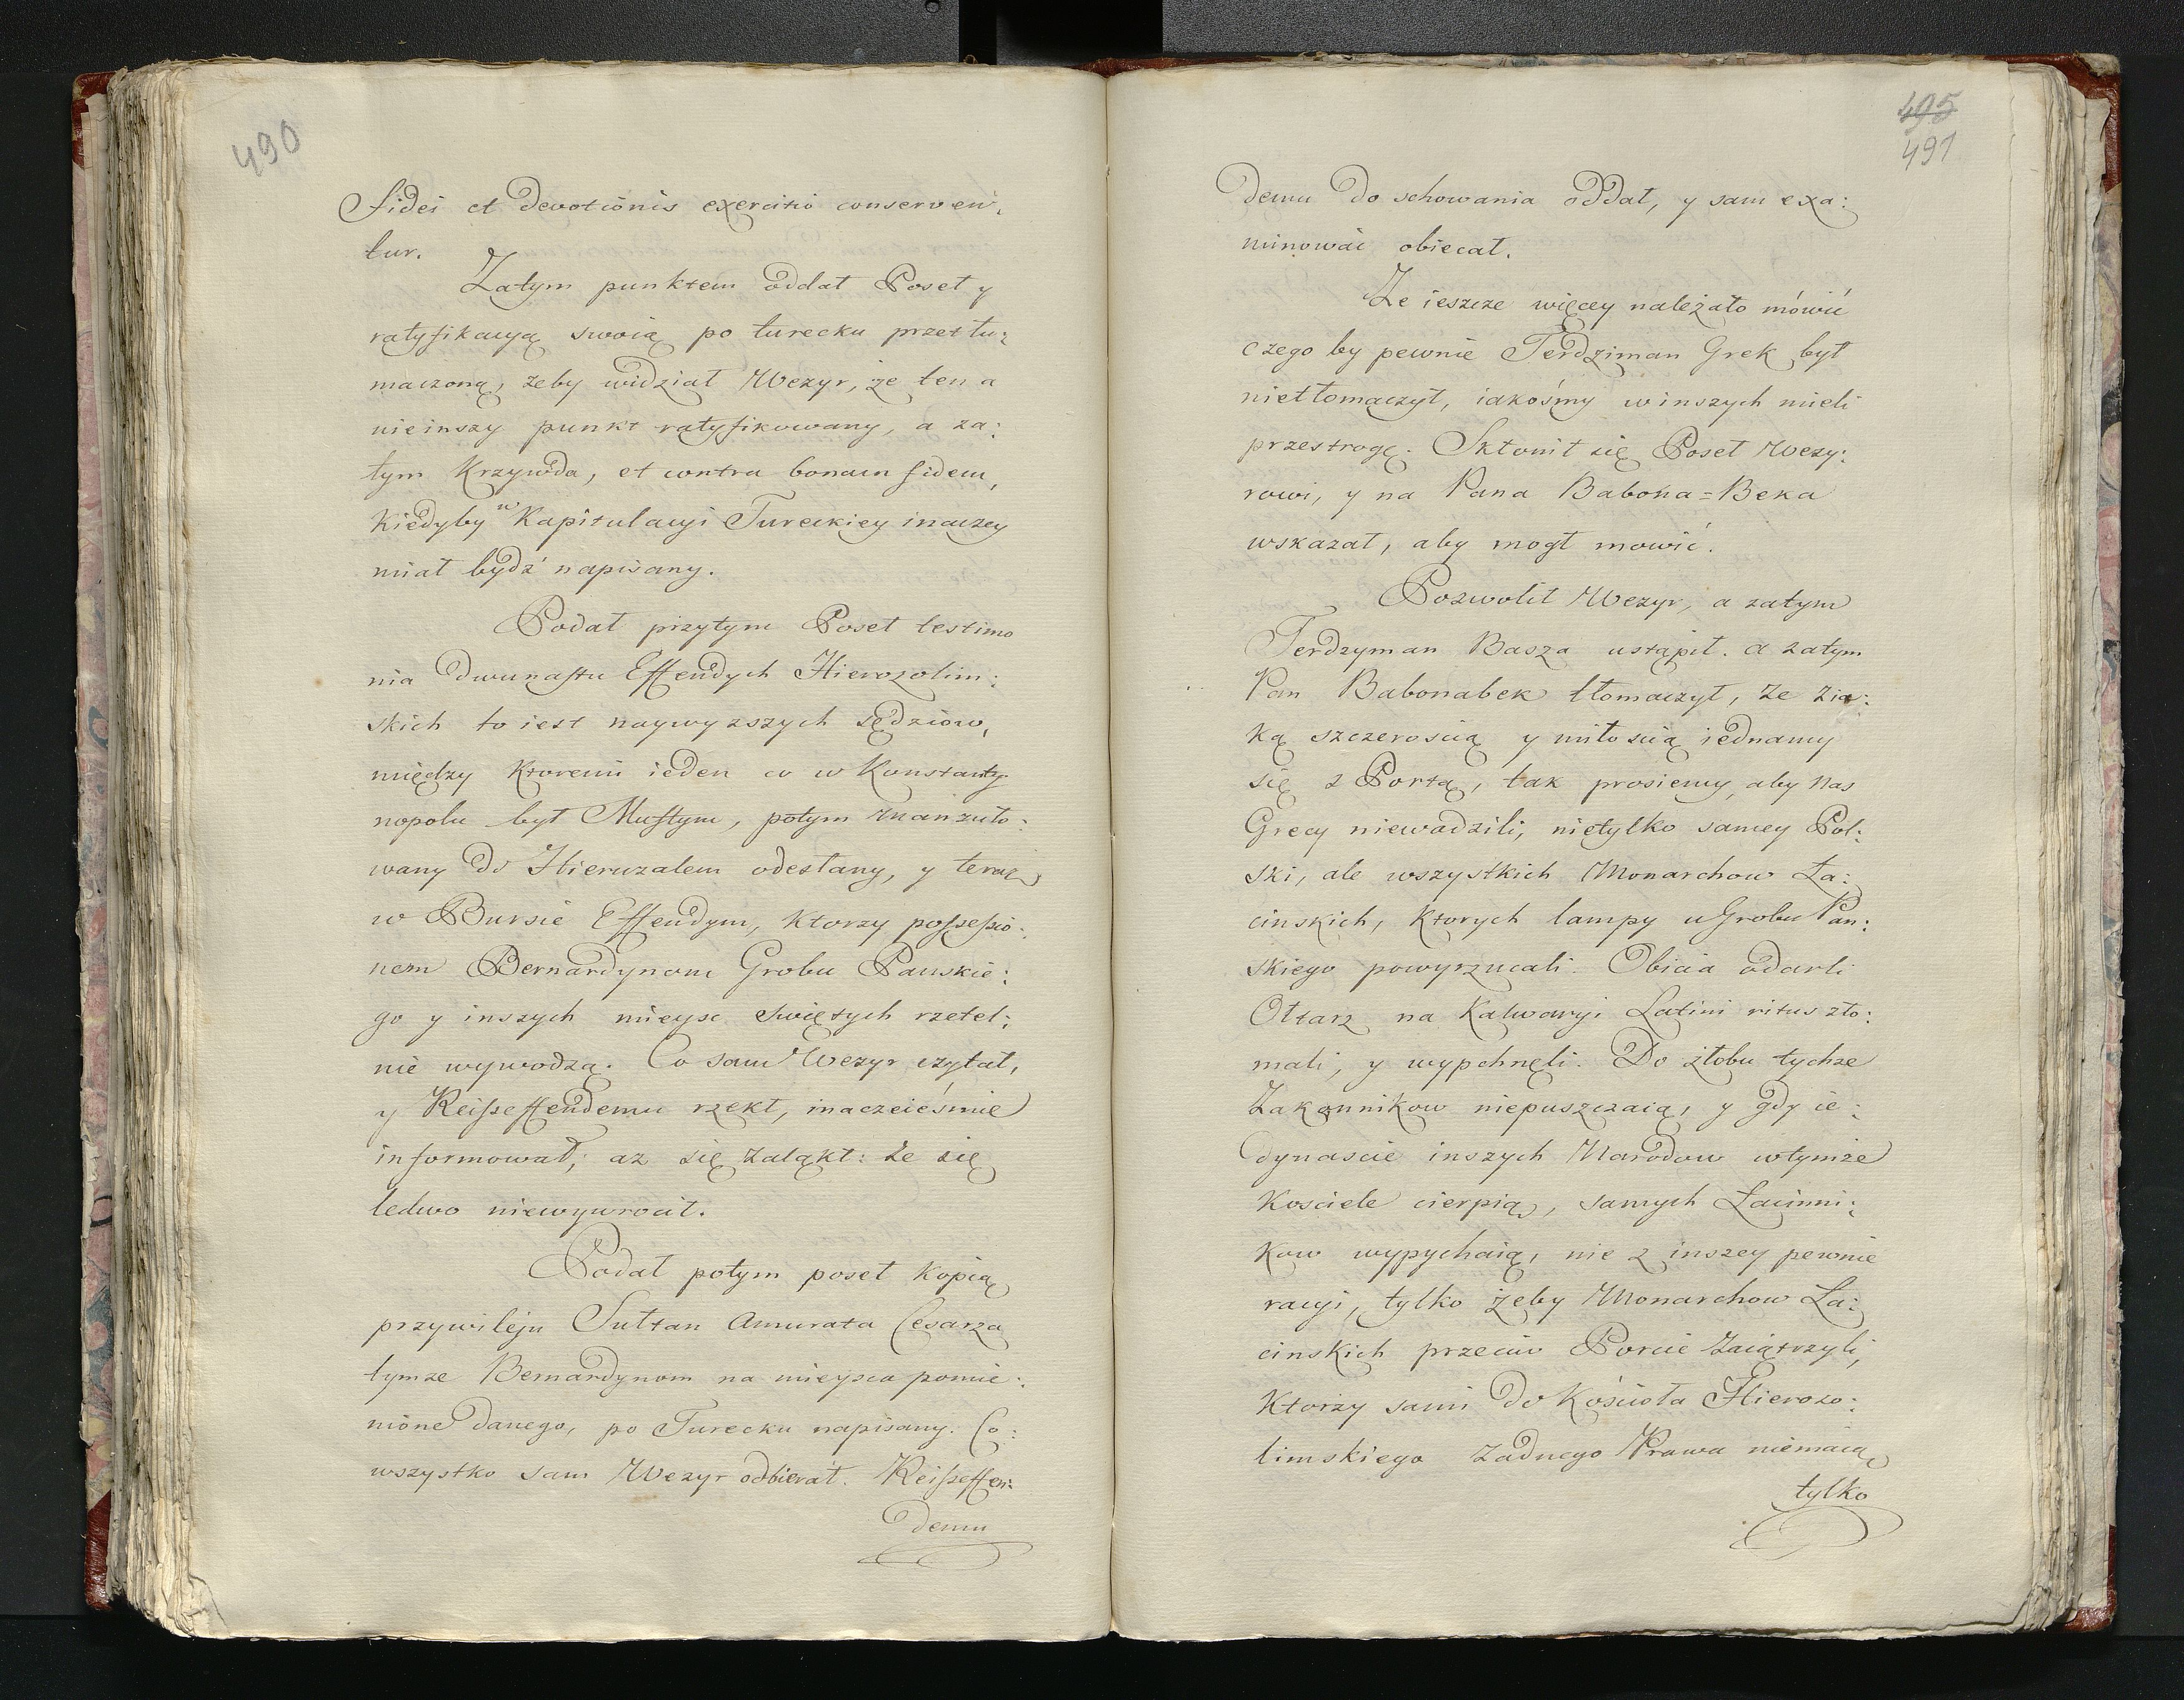 490
fidei et devotionis exercitio conserven,
tur.
Zatym punktem oddał Poseł y
ratyfikacyą swoią po turecku przetłu:
maczoną, żeby widział Wezyr, że ten a
nieinszy punkt ratyfikowany, a za:
tym Krzywda, et contra bonam fidem,
Kiedyby w Kapitulacyi Tureckiey inaczey
miał bydź napisany.
Podał przytym Poseł testimo
nia dwunastu Effendych Hierozolim:
skich to iest naywyzszych sędziow,
między Ktoremi ieden co w Konstanty
nopolu był Muftym, potym manzuło:
wany do Hieruzalem odesłany, y teraz
w Bursie Effendym, Ktorzy possessio:
nem Bernardynom Grobu Panskie:
go y inszych mieysc Swiętych rzetel:
nie wywodzą. Co sam Wezyr czytał,
y Reisseffendemu rzekł, inaczeieśmie
informował, aż się zaląkł: że się
ledwo niewywrocił.
Podał potym poseł Kopią
przywileju Sułtan Amurata Cesarza
tymze Bernardynom na mieysca pomie:
nione danego, po Turecku napisany. Co:
wszystko sam Wezyr odbierał. Reisseffen:
demu
495
491
demu do schowania oddał, y sam exa:
minować obiecał.
Ze ieszcze więcey należało mówić
czego by pewnie Terdziman Grek był
nietłomaczył, iakośmy w inszych mieli
przestrogę. Skłonił się Poseł Wezy:
rowi, y na Pana Babona=Beka
wskazał, aby mogł mowić.
Pozwolił Wezyr, a zatym
Terdzyman Basza ustąpił. a zatym
Pan Babonabek tłomaczył, że zia:
ką szczeroscią y miłoscią iednamy
się z Portą, tak prosiemy, aby nas
Grecy niewadzili, nietylko samey Pol:
ski, ale wszystkich Monarchow Ła:
cinskich, Ktorych lampy u Grobu Pan:
skiego powyrzucali. Obicia odarli
Ołtarz na Kalwaryi Latini ritus zło:
mali, y wypchnęli. Do żłobu tychze
Zakonnikow niepuszczaią, y gdy ie:
dynascie inszych Narodow wtymże
Kosciele cierpią, samych Łacinni:
kow wypychaią, nie z inszey pewnie
racyi, tylko żeby Monarchow Ła:
cinskich przeciw Porcie zaiątrzyli,
Ktorzy sami do Kościoła Hierozo:
limskiego żadnego Prawa niemaią
tylko